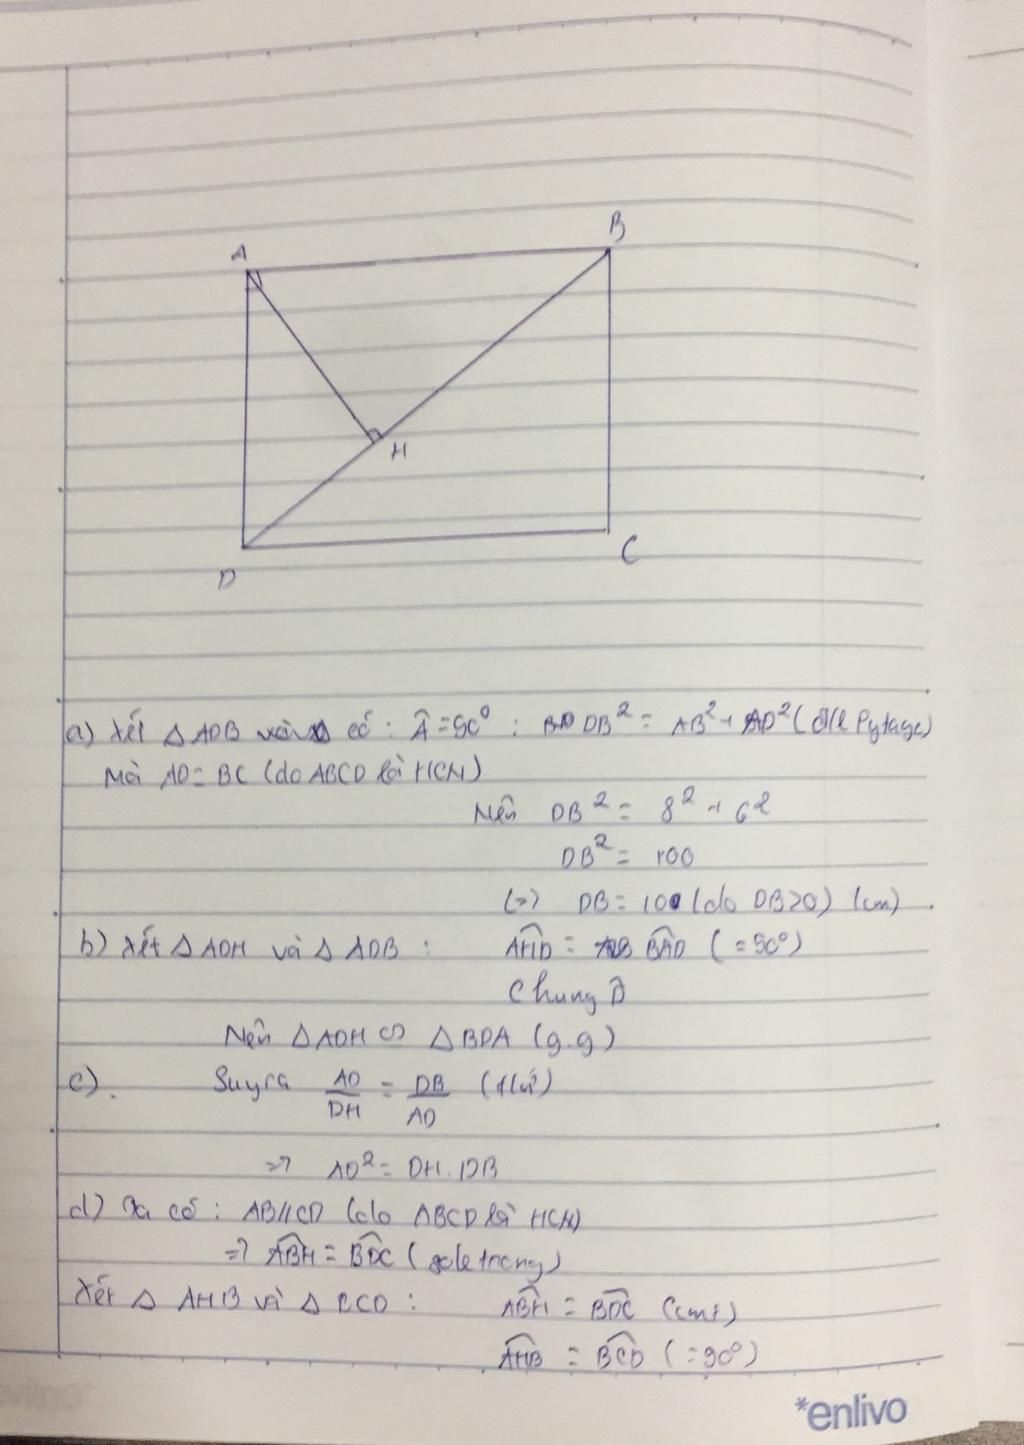 A
B
H
D
C
a) Xét △ ADB có : Â = 90⁰ : DB² = AB² + AD² (đ/l Pytago)
Mà AD = BC (do ABCD là HCN)
Nên DB² = 8² + 6²
DB² = 100
(=) DB = 10 (do DB>0) (cm) .
b) Xét △ ADH và △ ADB : AHD = BAD ( = 90⁰)
Chung D̂
Nên △ ADH ∽ △ BDA (g.g)
c). Suy ra AD/DH = DB/AD (tlứ)
=> AD² = DH . DB
d) Ta có : AB//CD (do ABCD là HCN)
=> ABH = BDC ( sole trong)
Xét △ AHB và △ BCD : ABH = BDC (cmt)
AHB = BCD ( = 90⁰)
*enlivo